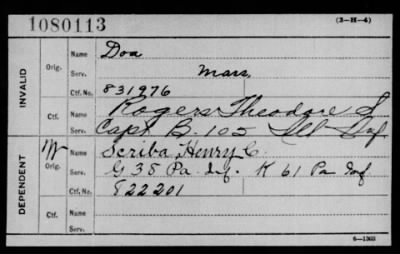 1080113 (3-H-4)
INVALID
Orig.
Name Doa
Serv. Mass.
Ctf. No. 831976
Ctf.
Name Rogers Theodore S
Serv. Capt. B. 105 Ill Inf
DEPENDENT
W Orig.
Name Scriba, Henry C.
Serv. G 35 Pa. Inf. K 61 Pa Inf
Ctf. No. 822201
Ctf.
Name
Serv.
6-1303